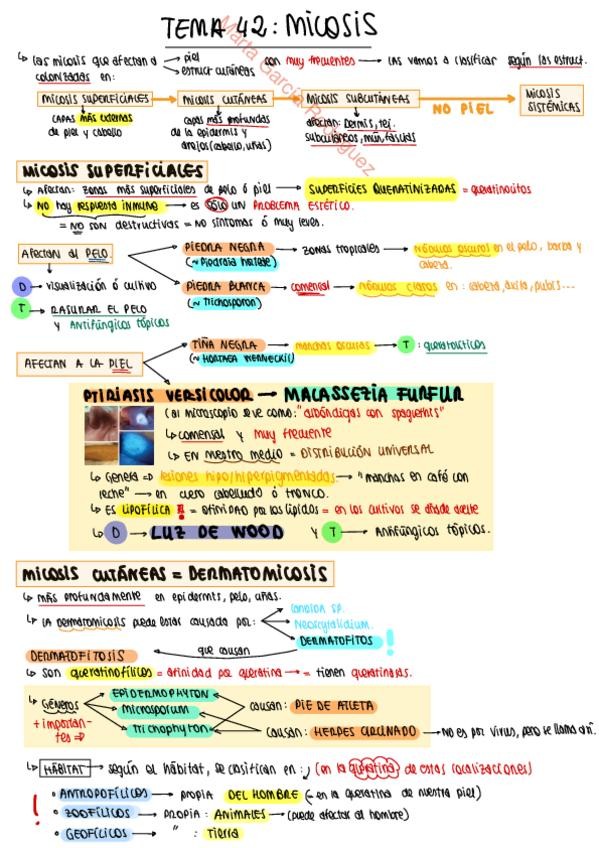 TEMA 42: MICOSIS
Marta García Rodríguez
↳ Las micosis que afectan a → piel → son muy frecuentes → las vamos a clasificar según las estruct.
→ estruct cutáneas
colonizadas en:
MICOSIS SUPERFICIALES → MICOSIS CUTÁNEAS → MICOSIS SUBCUTÁNEAS → NO PIEL → MICOSIS SISTÉMICAS
capas más externas de piel y cabello
capas más profundas de la epidermis y anejos (cabello, uñas)
afectan: Dermis, tej. subcutáneos, mún, fascias
MICOSIS SUPERFICIALES
↳ Afectan: zonas más superficiales de pelo ó piel → SUPERFICIES QUERATINIZADAS = queratinocitos
↳ NO hay respuesta inmune → es SÓLO UN PROBLEMA ESTÉTICO.
= NO son destructivas = NO síntomas ó muy leves.
AFECTAN al PELO
D → visualización ó cultivo
T → RASURAR EL PELO
y Antifúngicos tópicos
PIEDRA NEGRA → zonas tropicales → nódulos oscuros en el pelo, barba y cabeza.
(~ Piedraia hortae)
PIEDRA BLANCA → comensal → nódulos claros en: cabeza, axila, pubis...
(~ Trichosporon)
AFECTAN A LA PIEL
TIÑA NEGRA → manchas oscuras → T: queratolíticos
(~ HORTAEA WERNECKII)
PTIRIASIS VERSICOLOR → MALASSEZIA FURFUR
(al microscopio se ve como: "albóndigas con spaghettis"
↳ comensal y muy frecuente
↳ EN nuestro medio = DISTRIBUCIÓN UNIVERSAL
↳ Genera ⇒ lesiones hipo/hiperpigmentadas → "manchas en café con
leche" → en cuero cabelludo ó tronco.
↳ ES LIPOFÍLICA !! = afinidad por los lípidos = en los cultivos se añade aceite
↳ D → LUZ DE WOOD Y T → Antifúngicos tópicos.
MICOSIS CUTÁNEAS = DERMATOMICOSIS
↳ más profundamente en epidermis, pelo, uñas.
↳ LA Dermatomicosis puede estar causada por: → Candida SP.
→ Neoscytalidium.
→ DERMATOFITOS !
que causan
DERMATOFITOSIS
↳ son queratinofílicos = afinidad por queratina → = tienen queratinasas.
↳ Géneros
+ importantes ⇒
EPIDERMOPHYTON
microsporum
Trichophyton
causan: PIE DE ATLETA
causan: HERPES CIRCINADO → No es por virus, pero se llama así.
↳ HÁBITAT → según el hábitat, se clasifican en: (en la queratina de estas localizaciones)
• ANTROPOFÍLICOS → propia DEL HOMBRE (= en la queratina de nuestra piel)
! • ZOOFÍLICOS → PROPIA: ANIMALES → (puede afectar al hombre)
• GEOFÍLICOS → " : Tierra